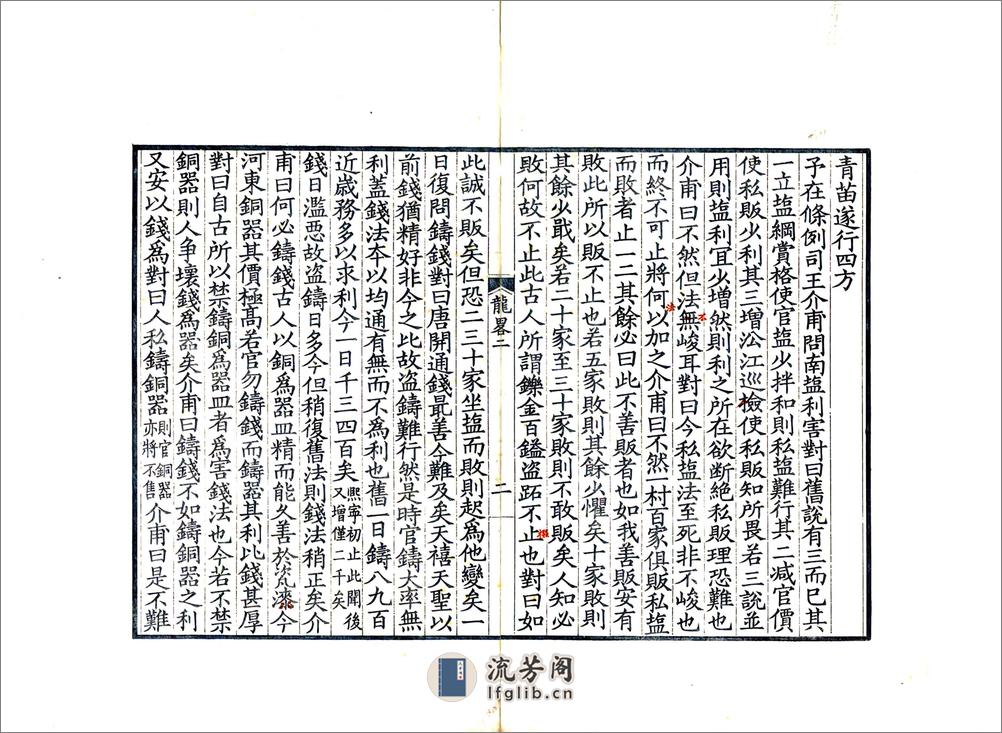 青苗遂行四方
予在條例司王介甫問南塩利害對曰舊說有三而已其
一立塩綱賞格使官塩少拌和則私塩難行其二減官價
使私販少利其三增沿江巡檢使私販知所畏若三說並
用則塩利宜少增然則利之所在欲断絕私販理恐難也
介甫曰不然但法無峻耳對曰今私塩法至死非不峻也
而終不可止將何以加之介甫曰不然一村百家俱販私塩
而敗者止一二其餘必曰此不善販者也如我善販安有
敗此所以販不止也若五家敗則其餘少懼矣十家敗則
其餘少戢矣若二十家至三十家敗則不敢販矣人知必
敗何故不止此古人所謂鑠金百鎰盜跖不止也對曰如
龍畧二
二
此誠不販矣但恐二三十家坐塩而敗則起為他變矣一
日復問鑄錢對曰唐開通錢最善今難及矣天禧天聖以
前錢猶精好非今之比故盜鑄難行然是時官鑄大率無
利蓋錢法本以均通有無而不為利也舊一日鑄八九百
近歲務多以求利今一日千三四百矣熙寧初止此聞後又增僅二千矣
錢日濫惡故盜鑄日多今但稍復舊法則錢法稍正矣介
甫曰何必鑄錢古人以銅為器皿精而能久善於瓷漆今
河東銅器其價極高若官勿鑄錢而鑄器其利比錢甚厚
對曰自古所以禁鑄銅為器皿者為害錢法也今若不禁
銅器則人争壞錢為器矣介甫曰鑄錢不如鑄銅器之利
又安以錢為對曰人私鑄銅器則官銅器亦將不售介甫曰是不難
不
法
流芳阁
lfglib.cn